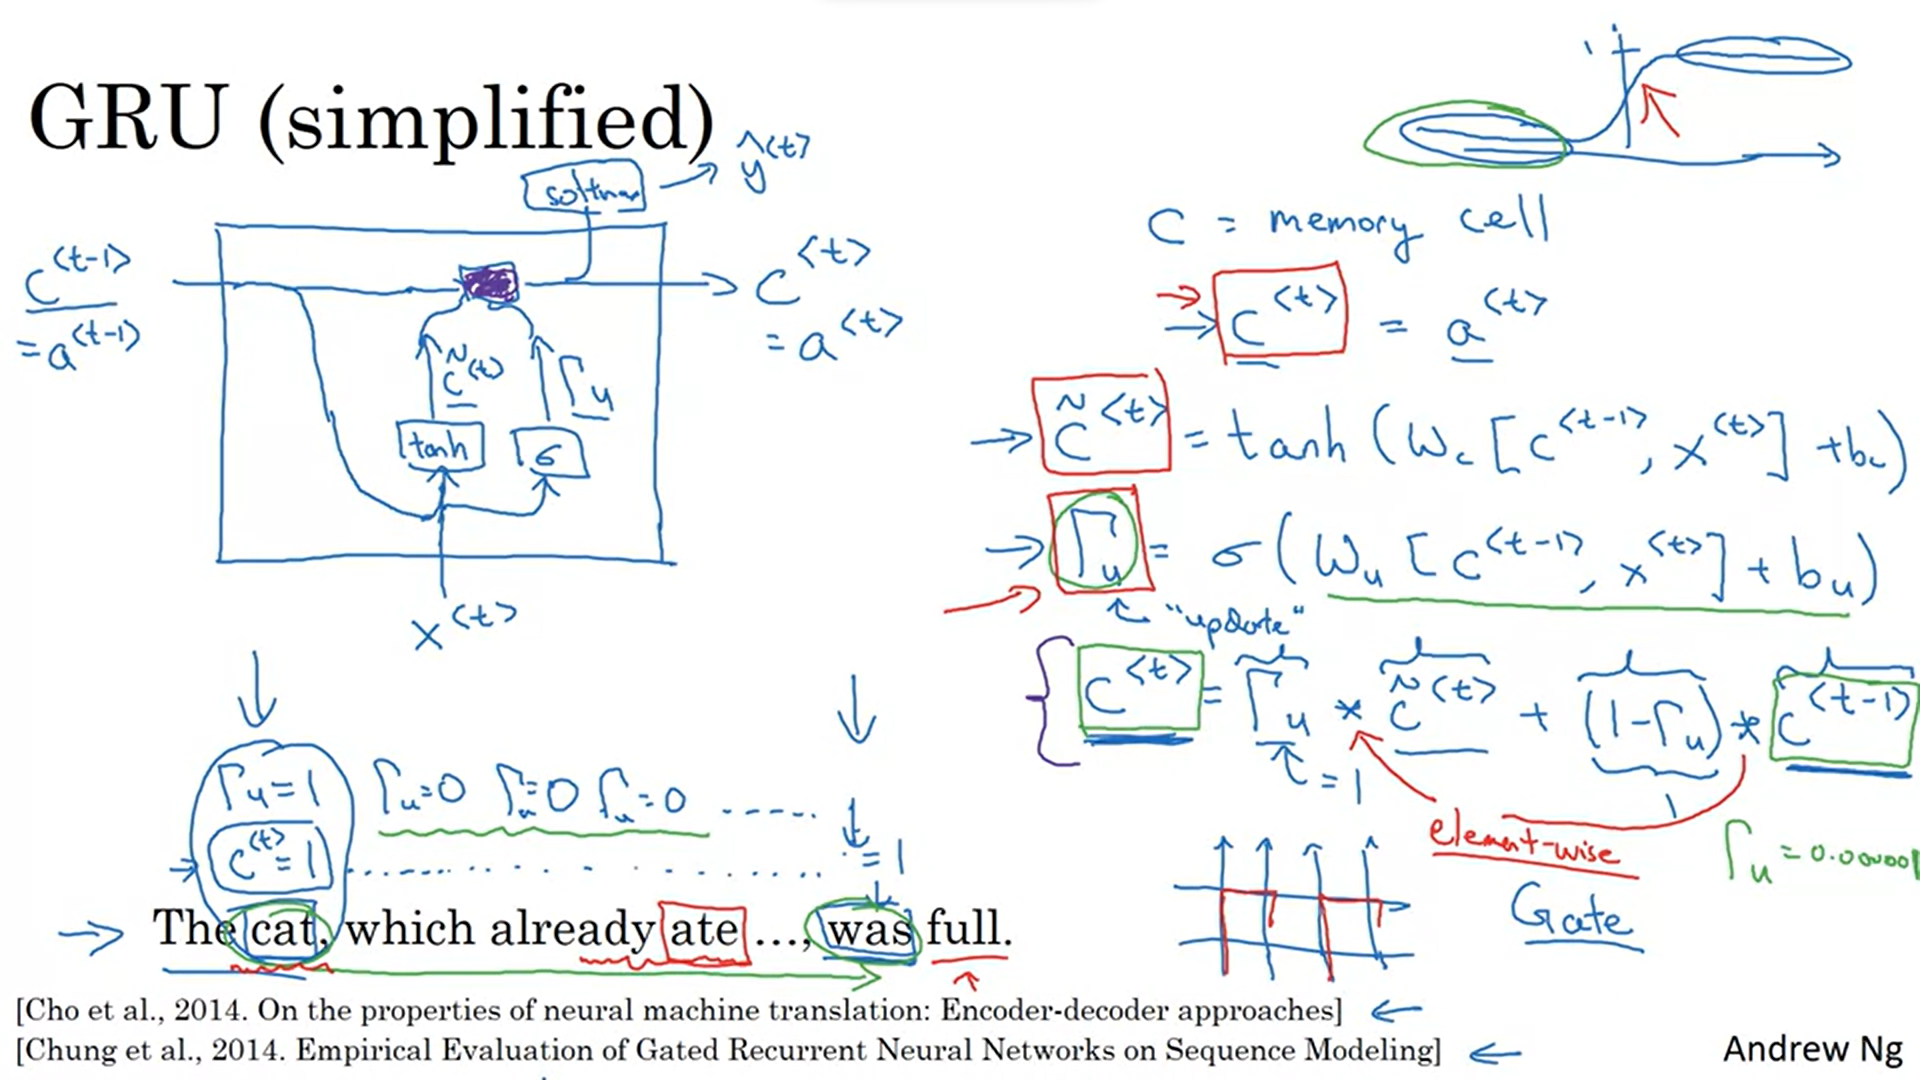 GRU (simplified)
softmax → ŷ<t>
c<t-1>
= a<t-1>
c<t>
= a<t>
c̃<t>
Γu
tanh
σ
x<t>
1
C = memory cell
→ c<t> = a<t>
→ c̃<t> = tanh (Wc [c<t-1>, x<t>] + bc)
→ Γu = σ (Wu [c<t-1>, x<t>] + bu)
"update"
c<t> = Γu * c̃<t> + (1-Γu) * c<t-1>
= 1
element-wise
Γu = 0.000001
Gate
Γu=1 Γu=0 Γu=0 Γu=0 .....
c<t>=1 ........ = 1
→ The cat, which already ate ..., was full.
[Cho et al., 2014. On the properties of neural machine translation: Encoder-decoder approaches] ←
[Chung et al., 2014. Empirical Evaluation of Gated Recurrent Neural Networks on Sequence Modeling] ←
Andrew Ng